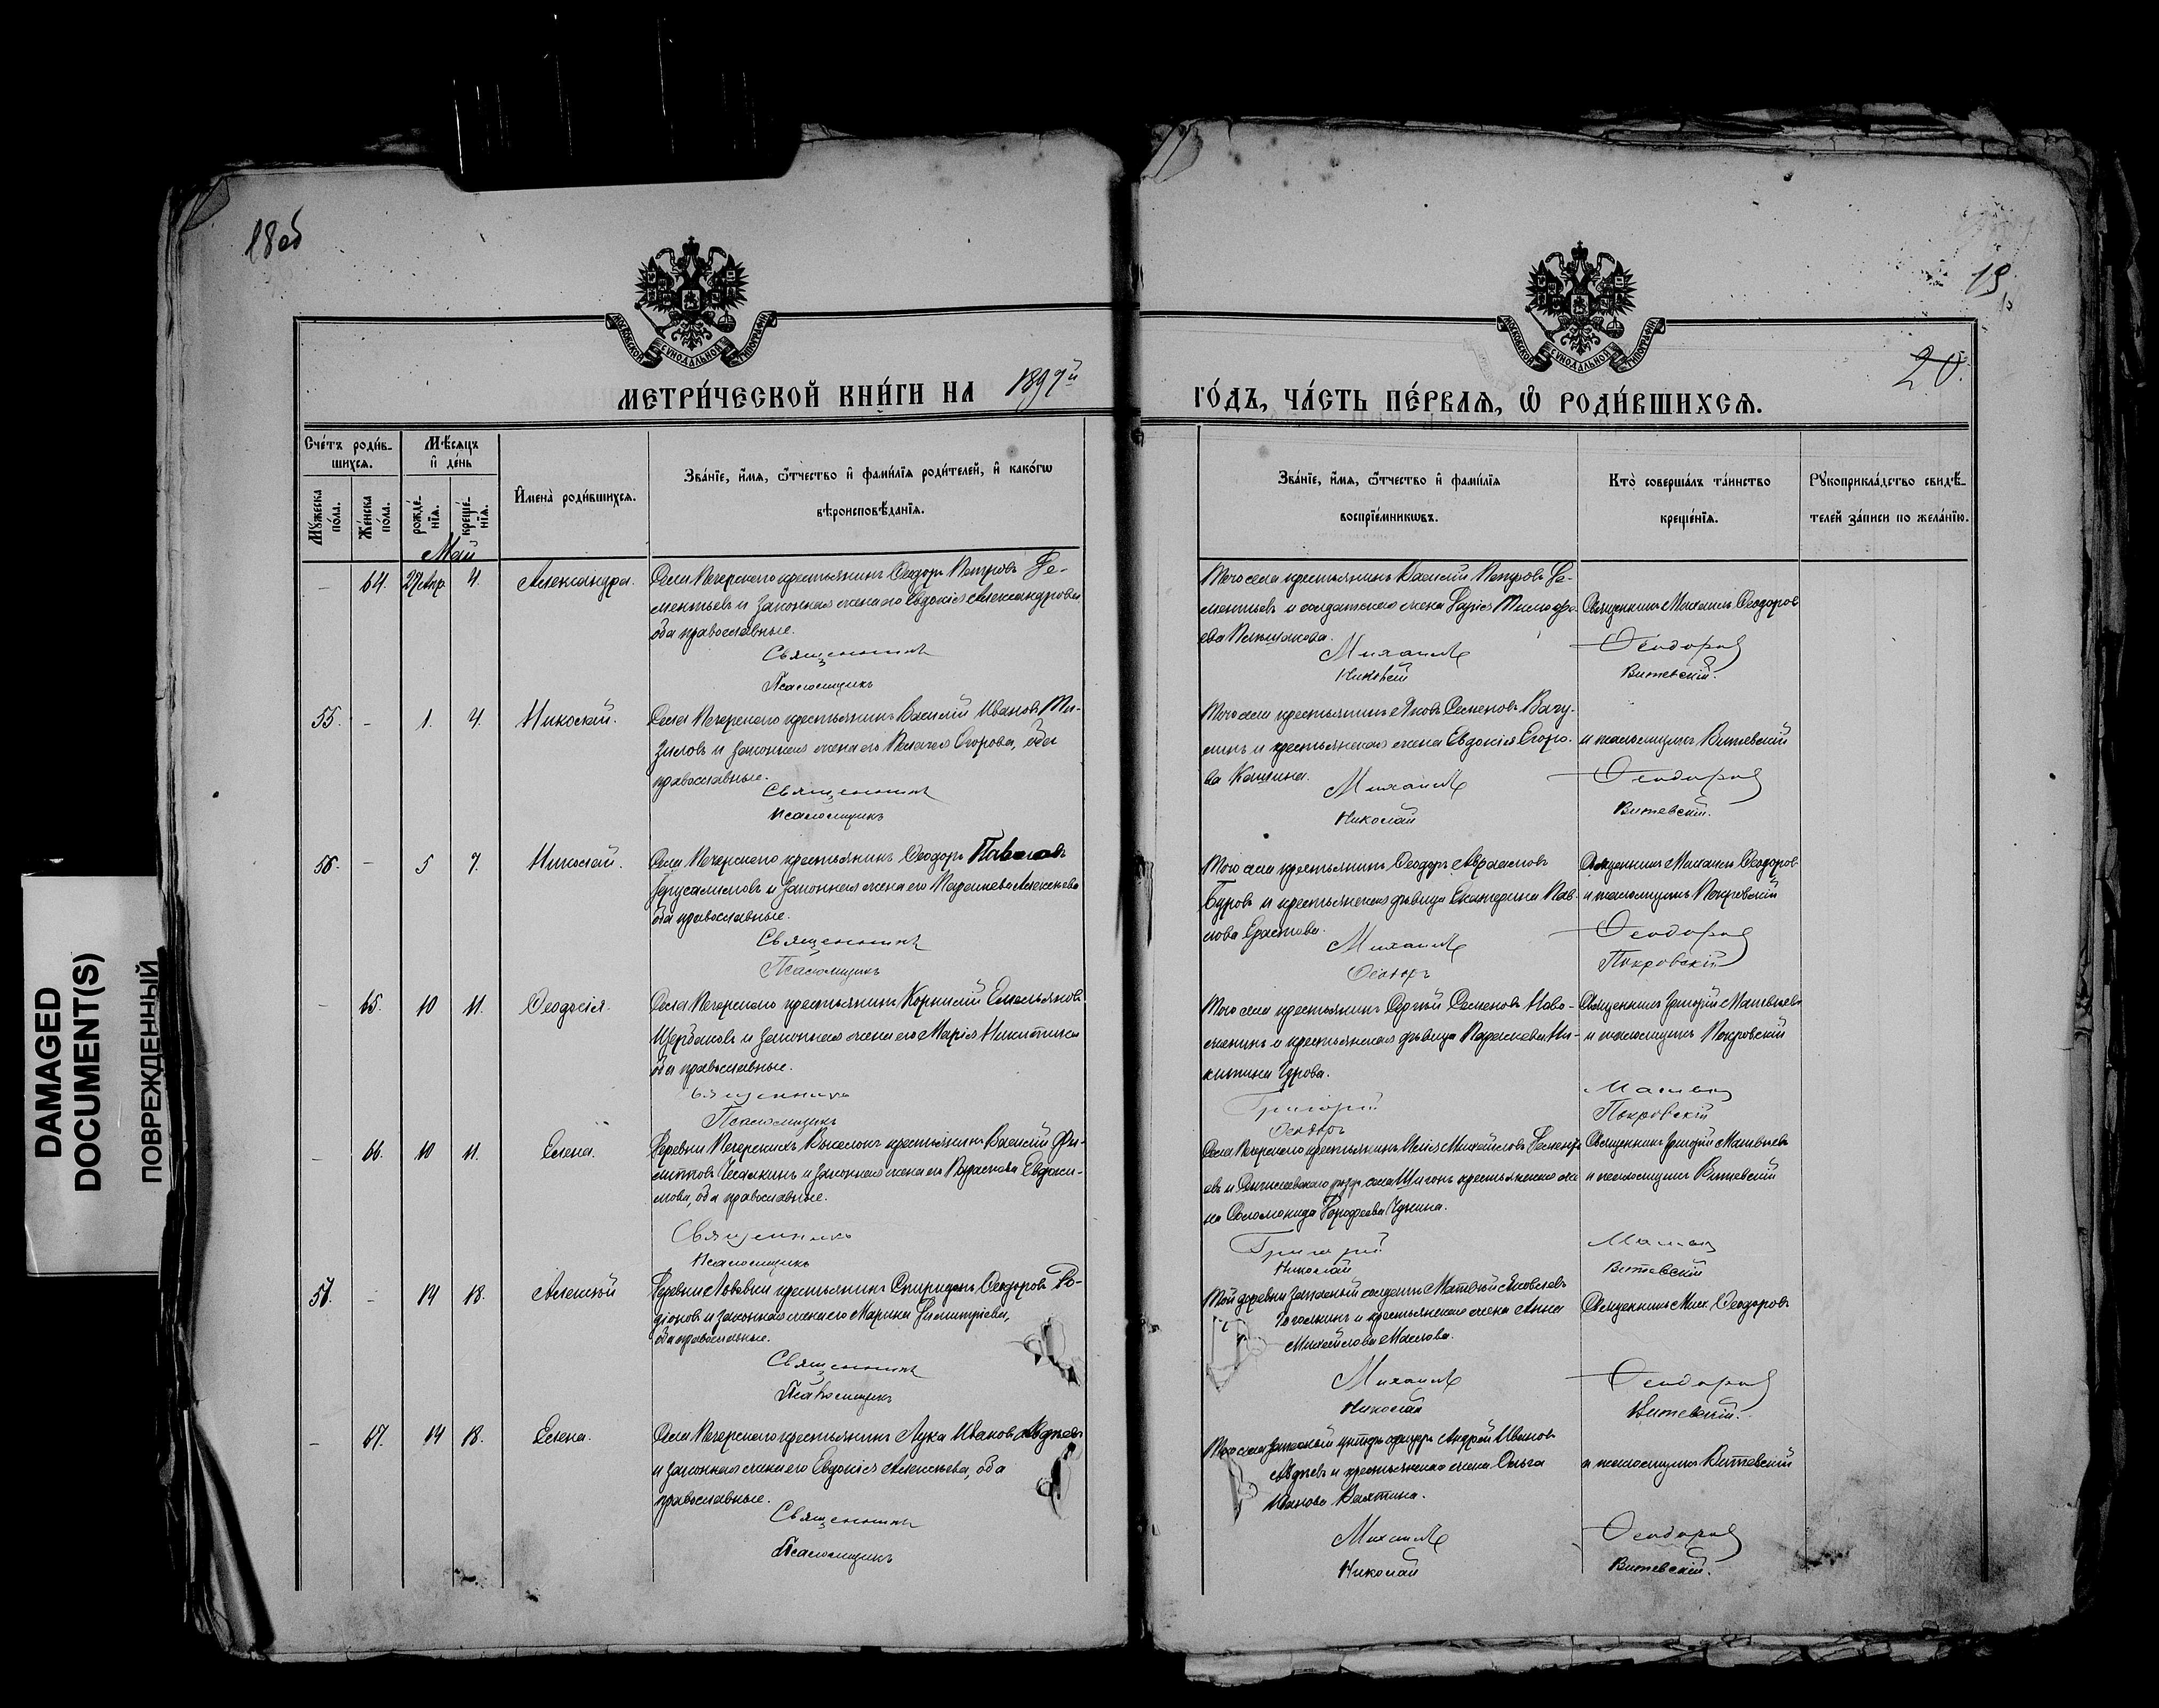 18 об
19
20.
МОСКОВСКОЙ СУНОДАЛЬНОЙ ТИПОГРАФІИ
МОСКОВСКОЙ СУНОДАЛЬНОЙ ТИПОГРАФІИ
МЕТРИ́ЧЕСКОЙ КНИ́ГИ НА 1897й ГО́ДЪ, ЧА́СТЬ ПЕ́РВАЯ, Ѡ РОДИ́ВШИХСЯ.
Сче́тъ роди́в-
шихся.
Мѣ́сяцъ
и де́нь
Му́жеска
по́ла.
Же́нска
по́ла.
рожде́-
нїя.
креще́-
нїя.
Имена̀ роди́вшихся.
Зва́нїе, и́мя, ѻ҆́тчество и фами́лїя роди́телей, и како́гѡ
вѣроисповѣ́данїя.
Зва́нїе, и́мя, ѻ҆́тчество и фами́лїя
воспрїе́мникѡвъ.
Кто̀ соверша́лъ та́инство
креще́нїя.
Рукоприкла́дство свидѣ́-
телей за́писи по жела́нїю.
Май
– 64. 27 Апр. 4. Александра. Села Печерскаго крестьянинъ Ѳеодоръ Петровъ Де-
ментьевъ и законная жена его Евдокія Александрова
оба православные.
Священникъ
Псаломщикъ
Того села крестьянинъ Василій Петровъ Де-
ментьевъ и солдатская жена Дарія Тимофе-
ева
Михаилъ
Николай
Священникъ Михаилъ Ѳеодоровъ
Ѳеодоровъ
Витевскій.
55. – 1. 4. Николай. Села Печерскаго крестьянинъ Василій Ивановъ Ти-
зиловъ и законная жена его Пелагея Егорова, оба
православные.
Священникъ
Псаломщикъ
Того села крестьянинъ Яковъ Семеновъ Вагу-
линъ и крестьянская жена Евдокія Егоро-
ва Кашина.
Михаилъ
Николай
и псаломщикъ Витевскій
Ѳеодоровъ
Витевскій.
56. – 5 7. Николай. Села Печерскаго крестьянинъ Ѳеодоръ Павловъ
Іерусалимовъ и законная жена его Параскева Алексѣева
оба православные.
Священникъ
Псаломщикъ
Того села крестьянинъ Ѳеодоръ Авраамовъ
Буровъ и крестьянская дѣвица Екатерина Пав-
лова Ерастова.
Михаилъ
Ѳеодоръ
Священникъ Михаилъ Ѳеодоровъ
и псаломщикъ Покровскій
Ѳеодоровъ
Покровскій
– 65. 10 11. Ѳеодосія. Села Печерскаго крестьянинъ Корнилій Емельяновъ
Щербаковъ и законная жена его Марія Никитина
оба православные.
Священникъ
Псаломщикъ
Того села крестьянинъ Сергѣй Семеновъ Ново-
женинъ и крестьянская дѣвица Параскева Ни-
китина Гурова.
Григорій
Ѳеодоръ
Священникъ Григорій Матвѣевъ
и псаломщикъ Покровскій
Матвѣевъ
Покровскій
– 66. 10 11. Елена. Деревни Печерскихъ Выселокъ крестьянинъ Василій Фи-
липповъ Чесалкинъ и законная жена его Параскева Евдоки-
мова, оба православные.
Священникъ
Псаломщикъ
Села Печерскаго крестьянинъ Илія Михайловъ Дементь-
евъ и села Шигонъ крестьянская же-
на Соломонида Дорофеева Чункина.
Григорій
Николай
Священникъ Григорій Матвѣевъ
и псаломщикъ Витевскій
Матвѣевъ
Витевскій
57. – 14 18. Алексѣй Деревни Львовки крестьянинъ Спиридонъ Ѳеодоровъ Ро-
діоновъ и законная жена его Марина Димитріева,
оба православные.
Священникъ
Псаломщикъ
Той деревни запасный солдатъ Матвѣй Яковлевъ
и крестьянская жена Анна
Михайлова Маслова.
Михаилъ
Николай
Священникъ Мих. Ѳеодоровъ
Ѳеодоровъ
Витевскій.
– 67. 14 18. Елена. Села Печерскаго крестьянинъ Лука Ивановъ Авдѣевъ
и законная жена его Евдокія Алексѣева, оба
православные.
Священникъ
Псаломщикъ
Того села запасный унтеръ офицеръ Андрей Ивановъ
Авдѣевъ и крестьянская жена Ольга
Иванова Вахтина.
Михаилъ
Николай
и псаломщикъ Витевскій
Ѳеодоровъ
Витевскій.
DAMAGED
DOCUMENT(S)
ПОВРЕЖДЕННЫЙ